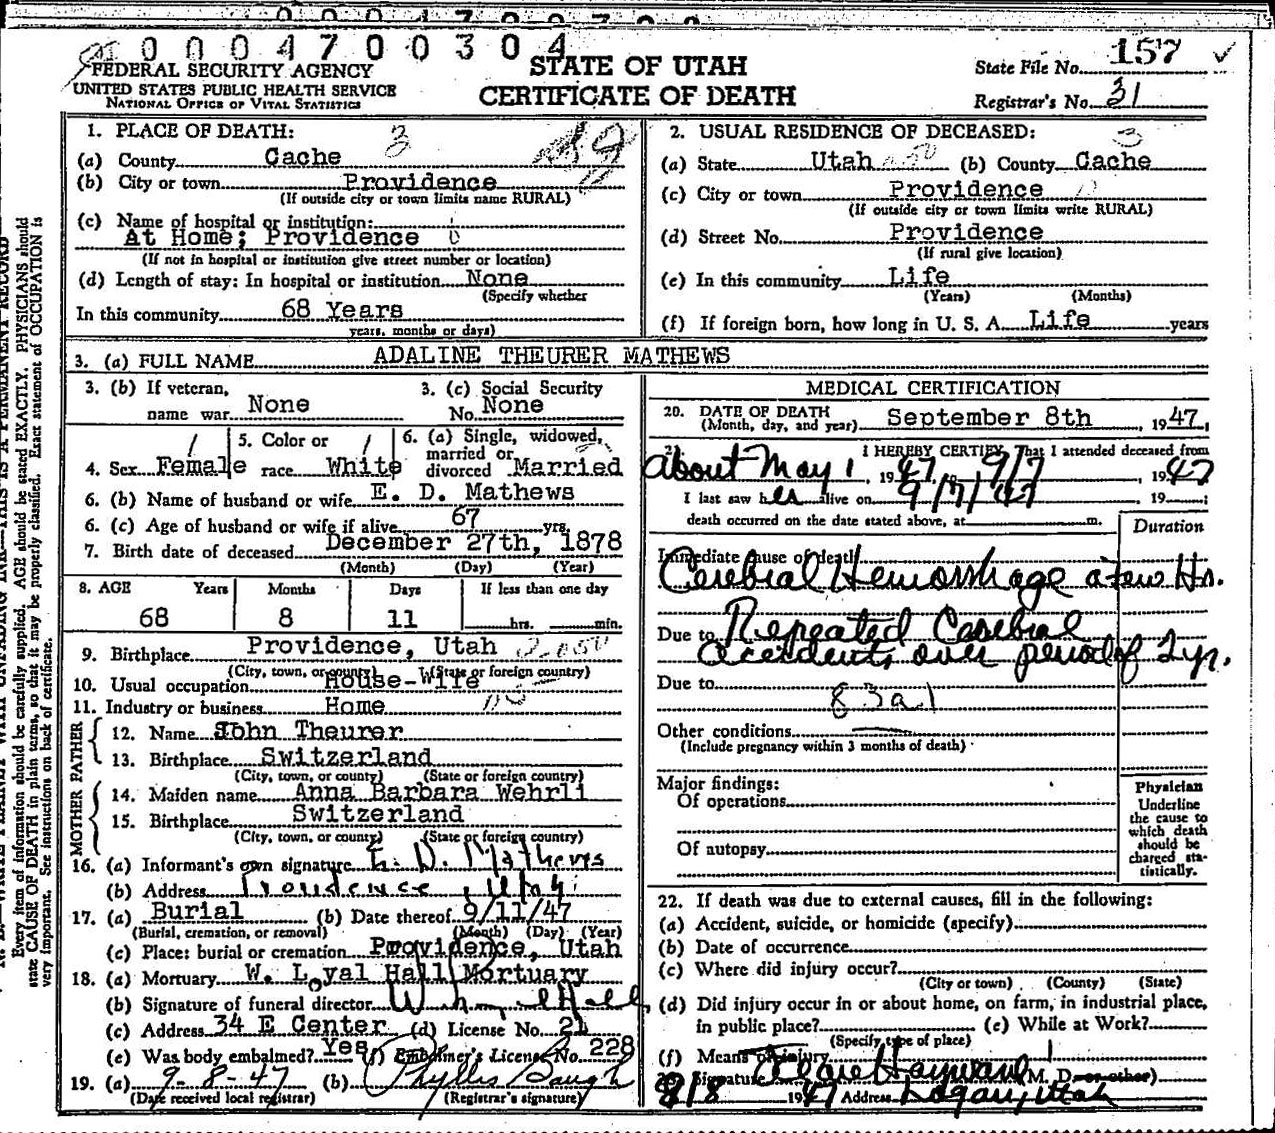 0004700304
FEDERAL SECURITY AGENCY
UNITED STATES PUBLIC HEALTH SERVICE
NATIONAL OFFICE OF VITAL STATISTICS
STATE OF UTAH
CERTIFICATE OF DEATH
State File No. 157
Registrar's No. 31
1. PLACE OF DEATH: 3
(a) County Cache
(b) City or town Providence
(If outside city or town limits name RURAL)
(c) Name of hospital or institution:
At Home; Providence
(If not in hospital or institution give street number or location)
(d) Length of stay: In hospital or institution None
(Specify whether
In this community 68 Years
years, months or days)
2. USUAL RESIDENCE OF DECEASED: 3
(a) State Utah (b) County Cache
(c) City or town Providence
(If outside city or town limits write RURAL)
(d) Street No. Providence
(If rural give location)
(e) In this community Life
(Years) (Months)
(f) If foreign born, how long in U. S. A. Life years
3. (a) FULL NAME ADALINE THEURER MATHEWS
3. (b) If veteran, name war None
3. (c) Social Security No. None
4. Sex Female
5. Color or race White
6. (a) Single, widowed, married or divorced Married
6. (b) Name of husband or wife E. D. Mathews
6. (c) Age of husband or wife if alive 67 yrs.
7. Birth date of deceased December 27th, 1878
(Month) (Day) (Year)
8. AGE Years Months Days If less than one day
68 8 11 hrs. min.
9. Birthplace Providence, Utah
(City, town, or county) (State or foreign country)
10. Usual occupation House-Wife
11. Industry or business Home
FATHER
12. Name John Theurer
13. Birthplace Switzerland
(City, town, or county) (State or foreign country)
MOTHER
14. Maiden name Anna Barbara Wehrli
15. Birthplace Switzerland
(City, town, or county) (State or foreign country)
16. (a) Informant's own signature E. D. Mathews
(b) Address Providence, Utah
17. (a) Burial (b) Date thereof 9/11/47
(Burial, cremation, or removal) (Month) (Day) (Year)
(c) Place: burial or cremation Providence, Utah
18. (a) Mortuary W. Loyal Hall Mortuary
(b) Signature of funeral director W. Loyal Hall
(c) Address 34 E Center (d) License No. 21
(e) Was body embalmed? Yes (f) Embalmer's License No. 228
19. (a) 9-8-47 (b) Phyllis Baugh
(Date received local registrar) (Registrar's signature)
MEDICAL CERTIFICATION
20. DATE OF DEATH
(Month, day, and year) September 8th, 1947,
I HEREBY CERTIFY, That I attended deceased from
About May 1, 1947 9/7, 1947
I last saw her alive on 9/7/47 19 ;
death occurred on the date stated above, at m.
Duration
Immediate cause of death
Cerebral Hemorrhage a few Hr.
Due to Repeated Cerebral
accidents over period of 2 yr.
Due to
83a1
Other conditions
(Include pregnancy within 3 months of death)
Major findings:
Of operations
Of autopsy
Physician
Underline
the cause to
which death
should be
charged sta-
tistically.
22. If death was due to external causes, fill in the following:
(a) Accident, suicide, or homicide (specify)
(b) Date of occurrence
(c) Where did injury occur?
(City or town) (County) (State)
(d) Did injury occur in or about home, on farm, in industrial place,
in public place? (e) While at Work?
(Specify type of place)
(f) Means of injury
Signature Hayward (M. D. or other)
9/8 1947 Address Logan, Utah
Every item of information should be carefully supplied. AGE should be stated EXACTLY. PHYSICIANS should
state CAUSE OF DEATH in plain terms, so that it may be properly classified. Exact statement of OCCUPATION is
very important. See instructions on back of certificate.